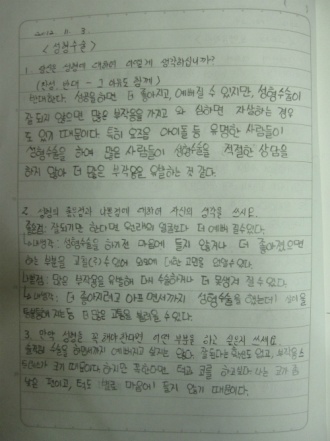 2012. 11. 8.
<성형수술>
1. 당신은 성형에 대하여 어떻게 생각하십니까?
(찬성, 반대 - 그 이유도 함께)
반대한다. 성공하면 더 좋아지고, 예뻐질 수 있지만, 성형수술이
잘 되지 않으면 많은 부작용을 가지고 와 심하면 자살하는 경우
도 있기 때문이다. 특히 요즘 아이돌 등 유명한 사람들이
성형수술을 하여 많은 사람들이 성형수술을 적절한 상담을
하지 않아 더 많은 부작용을 유발하는 것 같다.
2. 성형의 좋은점과 나쁜점에 대하여 자신의 생각을 쓰세요.
좋은점: 잘되기만 한다면 원래의 얼굴보다 더 예뻐 질수있다.
나의생각: 성형수술을 하기전 마음에 들지 않거나 더 좋아졌으면
하는 부분을 고칠( 수)있어 외모에 대한 고민을 없앨수있다.
나쁜점: 많은 부작용을 유발해 재수술하거나 더 못생겨 질 수있다.
나의생각: 더 좋아지려고 아프면서까지 성형수술을 했는데
더 많은 고통을 불러올 수있다.
3. 만약 성형을 꼭 해야 한다면 어떤 부분을 하고 싶은지 쓰세요.
솔직히 수술을 하면서까지 예뻐지고 싶지는 않다.
때문이다. 하지만 꼭한다면 턱과 코를 하고싶다. 나는 코가
낮은 편이고, 턱도 마음에 들지 않기 때문이다.